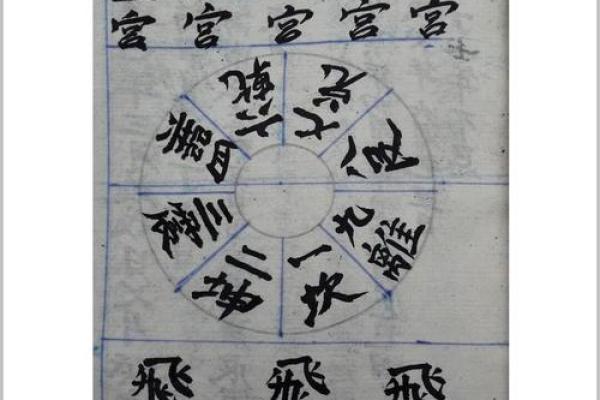 宫 宫 宫 宫 宫
一坎
二坤
三震
四巽
六乾
七兑
八艮
九離
飛 飛 飛